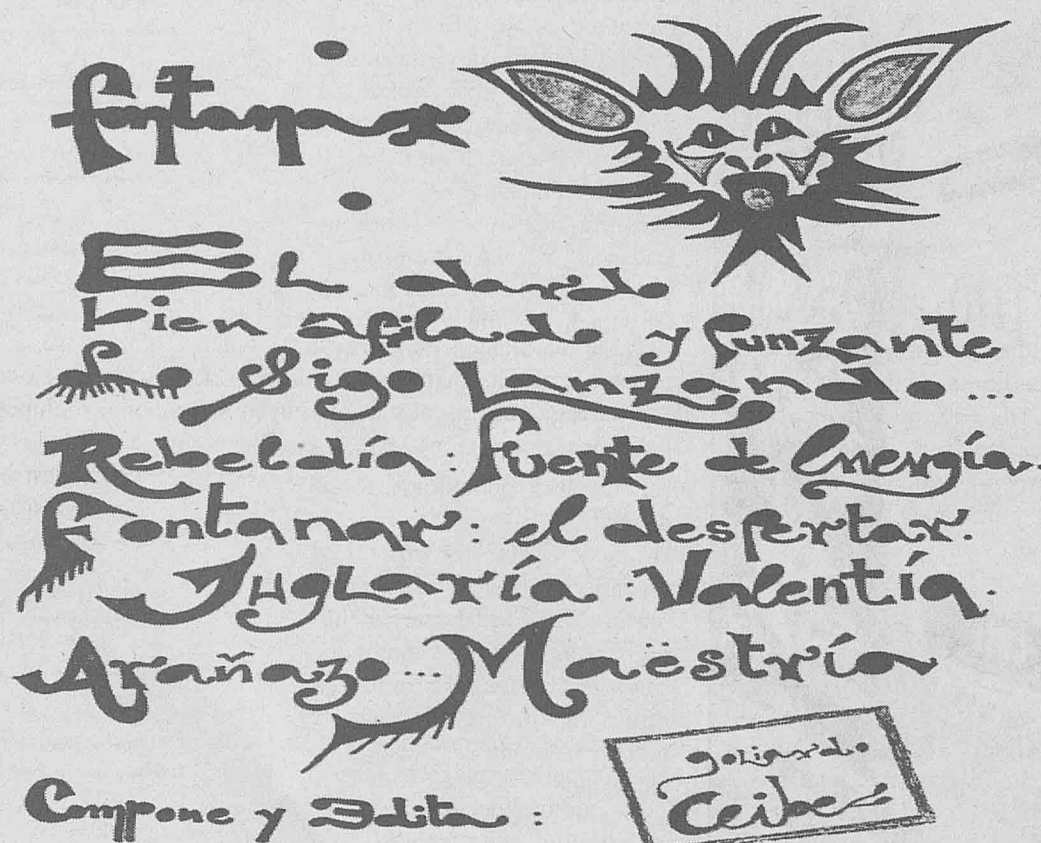 fontanar
El dardo
bien afilado y punzante
lo sigo Lanzando...
Rebeldía: fuente de Energía.
Fontanar: el despertar.
Juglaría: Valentía.
Arañazo... Maëstría
Compone y Edita:
goliardo
Ceibe